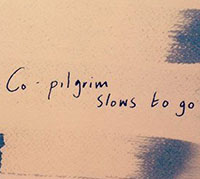 Co-pilgrim
slows to go